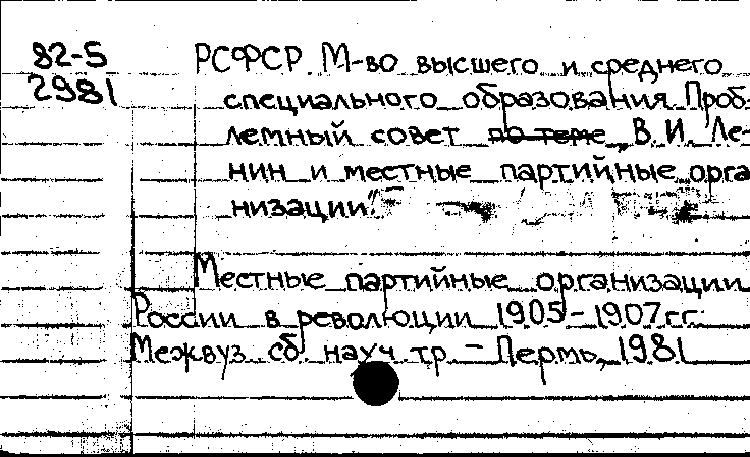 82-5
2981
РСФСР. М-во высшего и среднего
специального образования. Проб-
лемный совет по теме „В. И. Ле-
нин и местные партийные орга
низации"
Местные партийные организации
России в революции 1905-1907гг.
Межвуз. сб. науч. тр. - Пермь, 1981